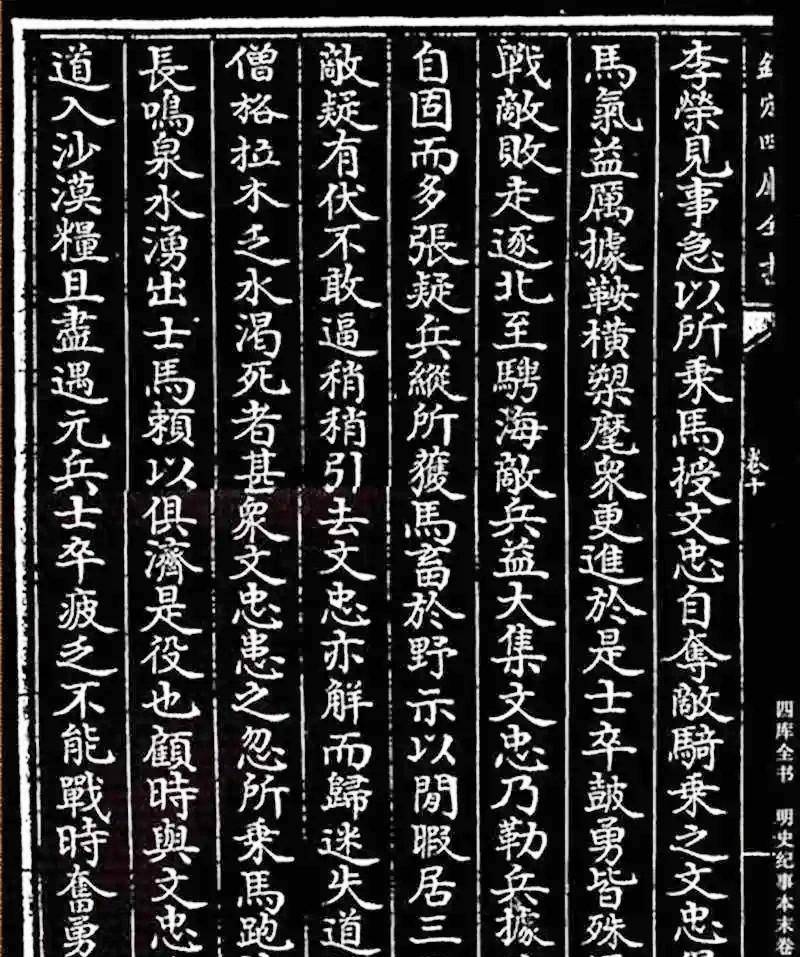 欽定四庫全書
卷十
李榮見事急以所乘馬授文忠自奪敵騎乘之文忠得
馬氣益厲據鞍橫槊麾衆更進於是士卒鼓勇皆殊
戰敵敗走逐北至騁海敵兵益大集文忠乃勒兵據
自固而多張疑兵縱所獲馬畜於野示以閒暇居三
敵疑有伏不敢逼稍稍引去文忠亦解而歸迷失道
僧格拉木乏水渴死者甚衆文忠患之忽所乘馬跑
長鳴泉水湧出士馬頼以俱濟是役也顧時與文忠
道入沙漠糧且盡遇元兵士卒疲乏不能戰時奮勇
四库全书 明史纪事本末卷